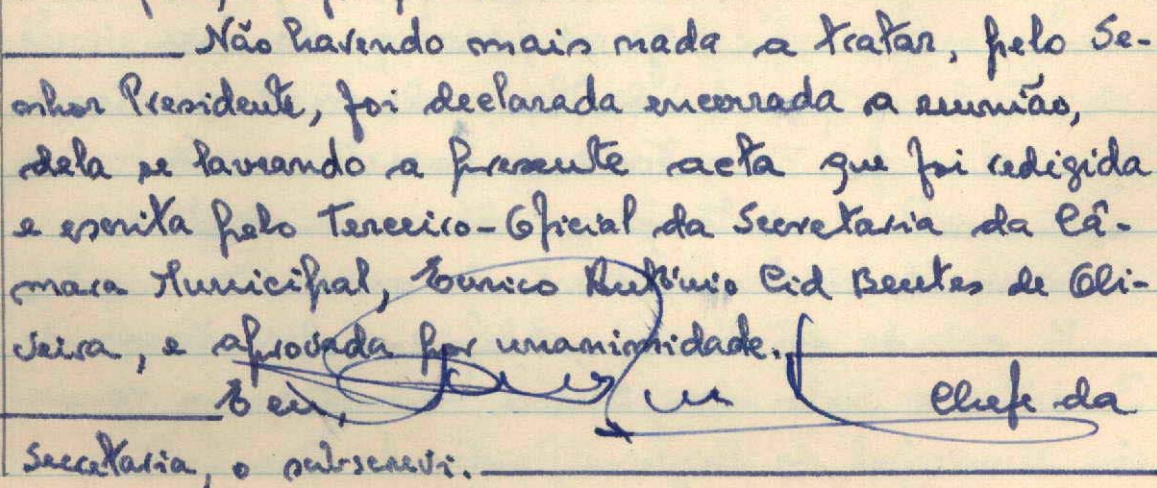 Não havendo mais nada a tratar, pelo Se-
nhor Presidente, foi declarada encerrada a reunião,
dela se lavrando a presente acta que foi redigida
e escrita pelo Terceiro-Oficial da Secretaria da Câ-
mara Municipal, Eurico António Cid Bentes de Oli-
veira, e aprovada por unanimidade.
E eu, Chefe da
Secretaria, o subscrevi.